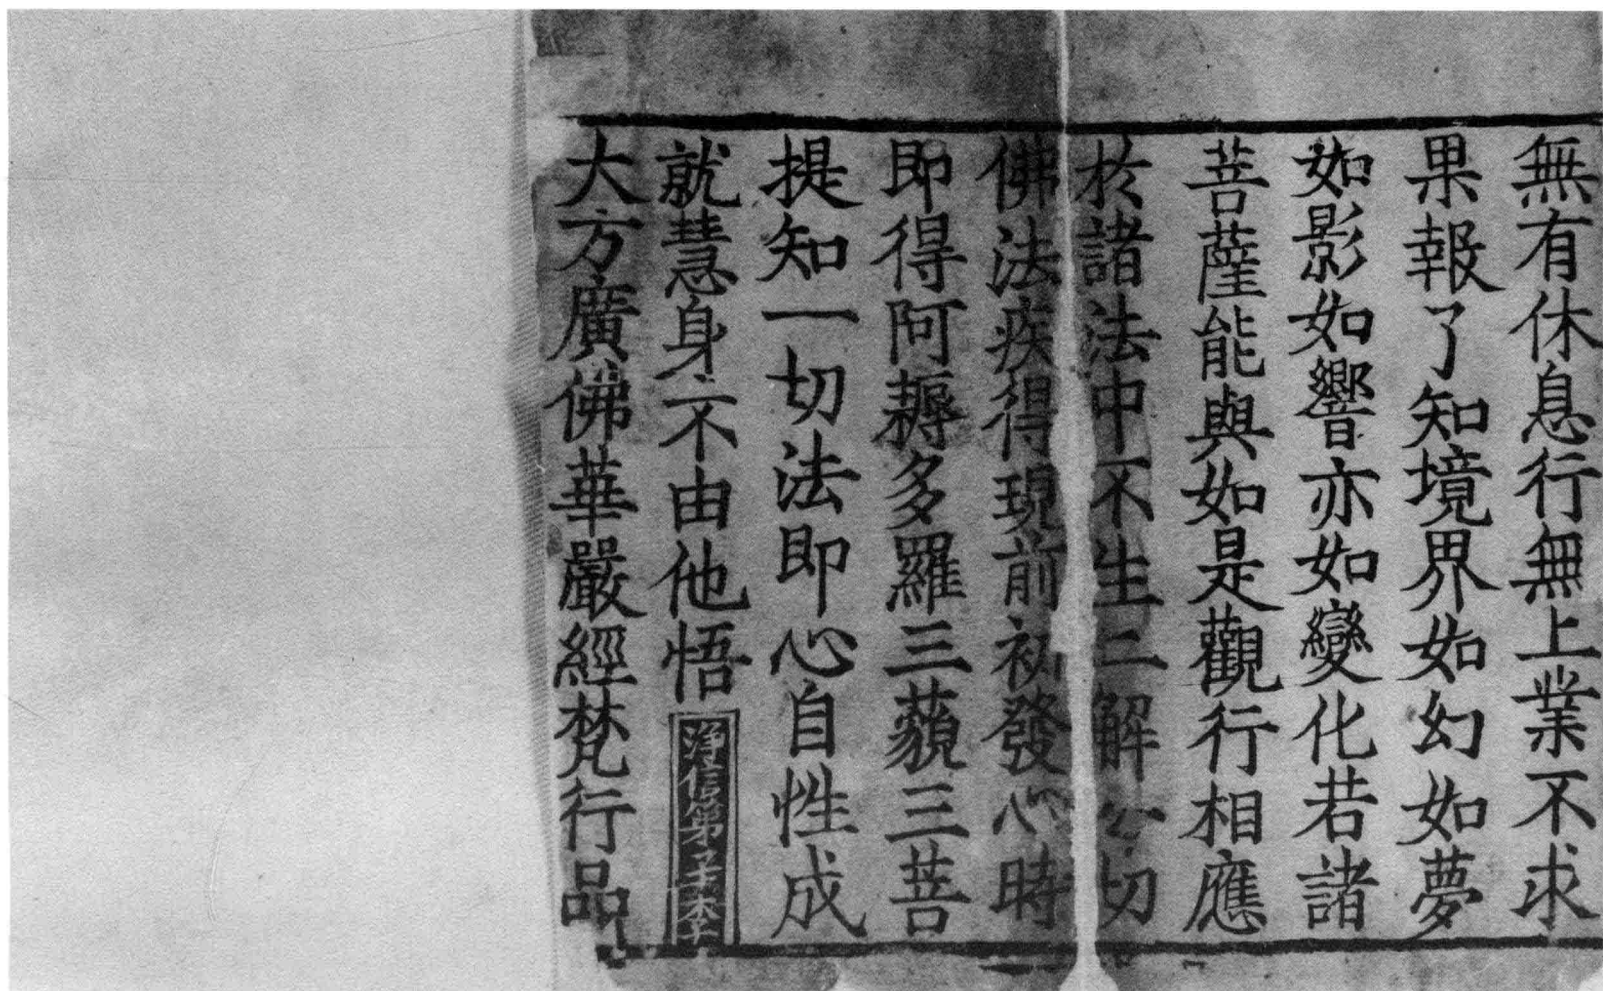 無有休息行無上業不求
果報了知境界如幻如夢
如影如響亦如變化若諸
菩薩能與如是觀行相應
於諸法中不生二解一切
佛法疾得現前初發心時
即得阿耨多羅三藐三菩
提知一切法即心自性成
就慧身不由他悟
淨信弟子李
大方廣佛華嚴經梵行品